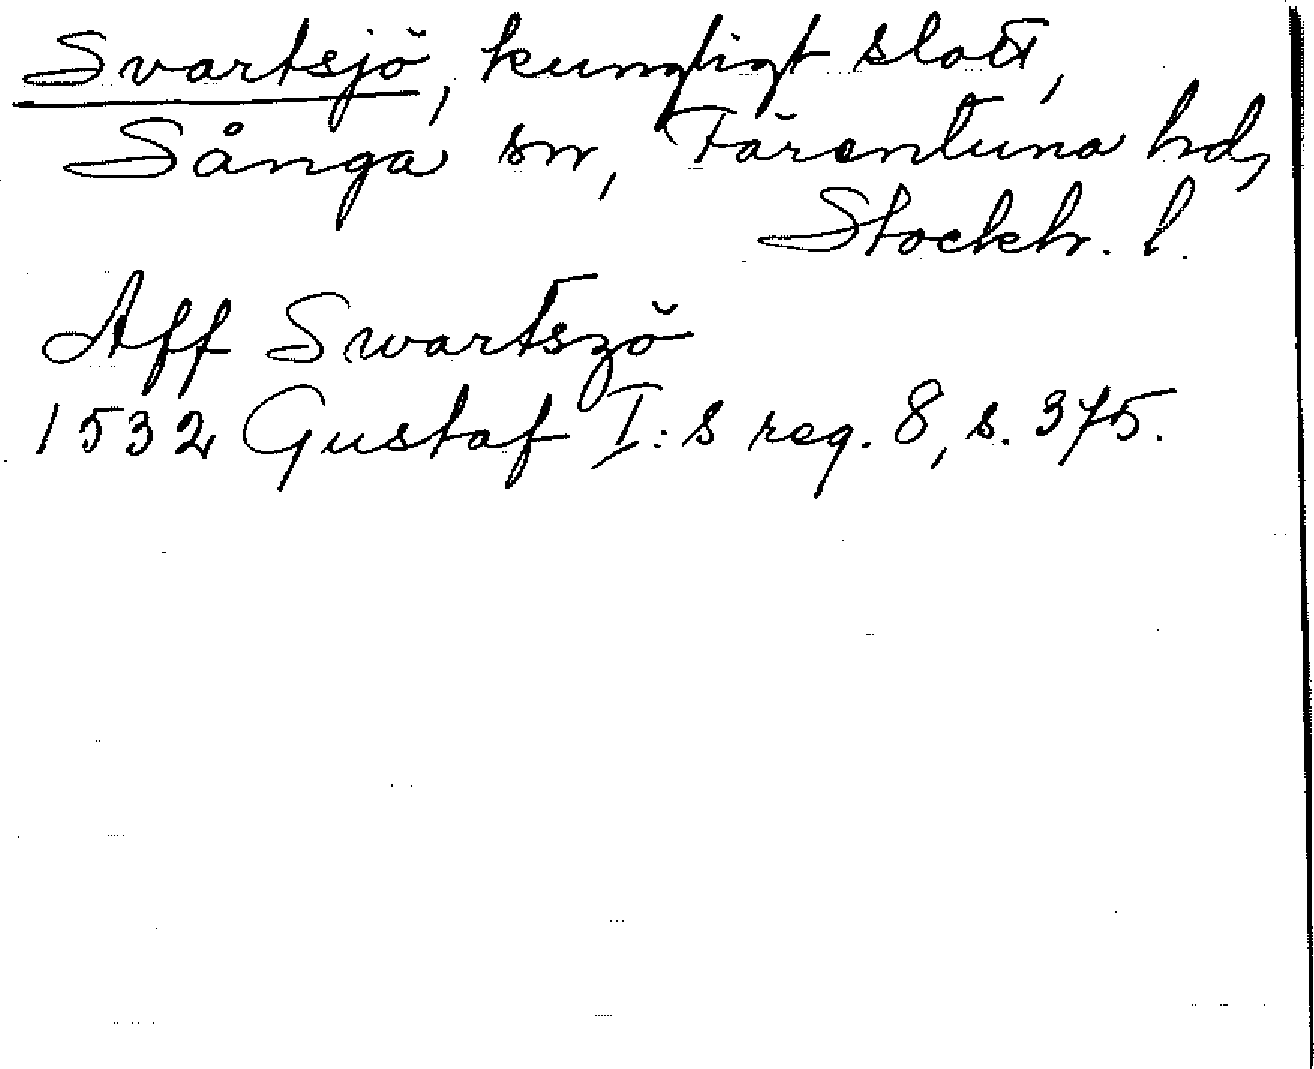 Svartsjö, kungligt slott,
Sånga sn, Färentuna hd,
Stockh. l.
Aff Swartszö
1532 Gustaf I:s reg. 8, s. 375.